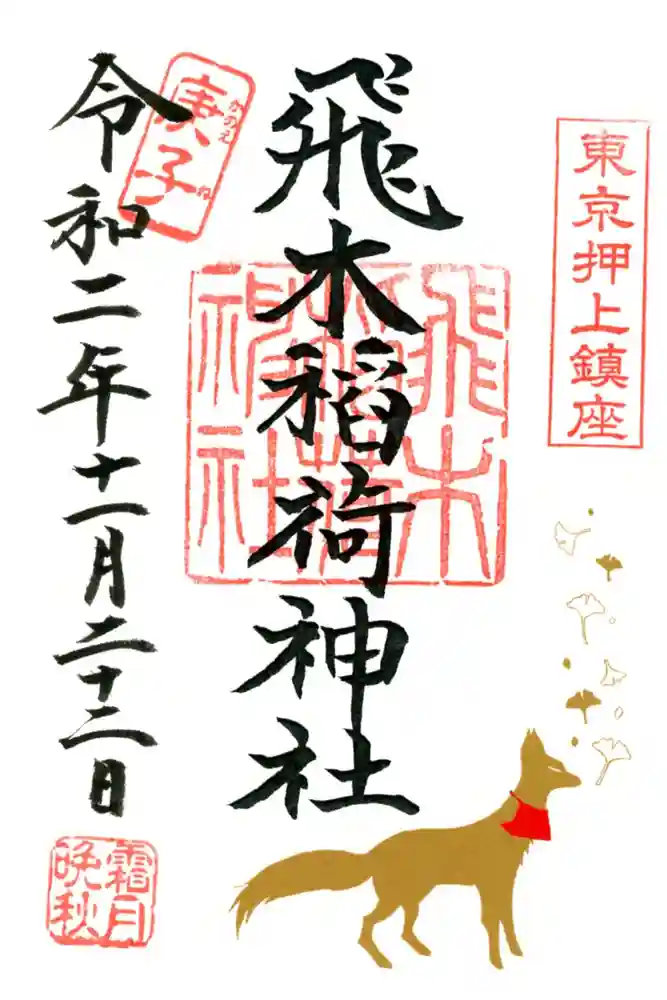 東京押上鎮座
飛木稲荷神社
飛木
稲荷
神社
庚子
かのえ
ね
令和二年十一月二十二日
霜月
晩秋